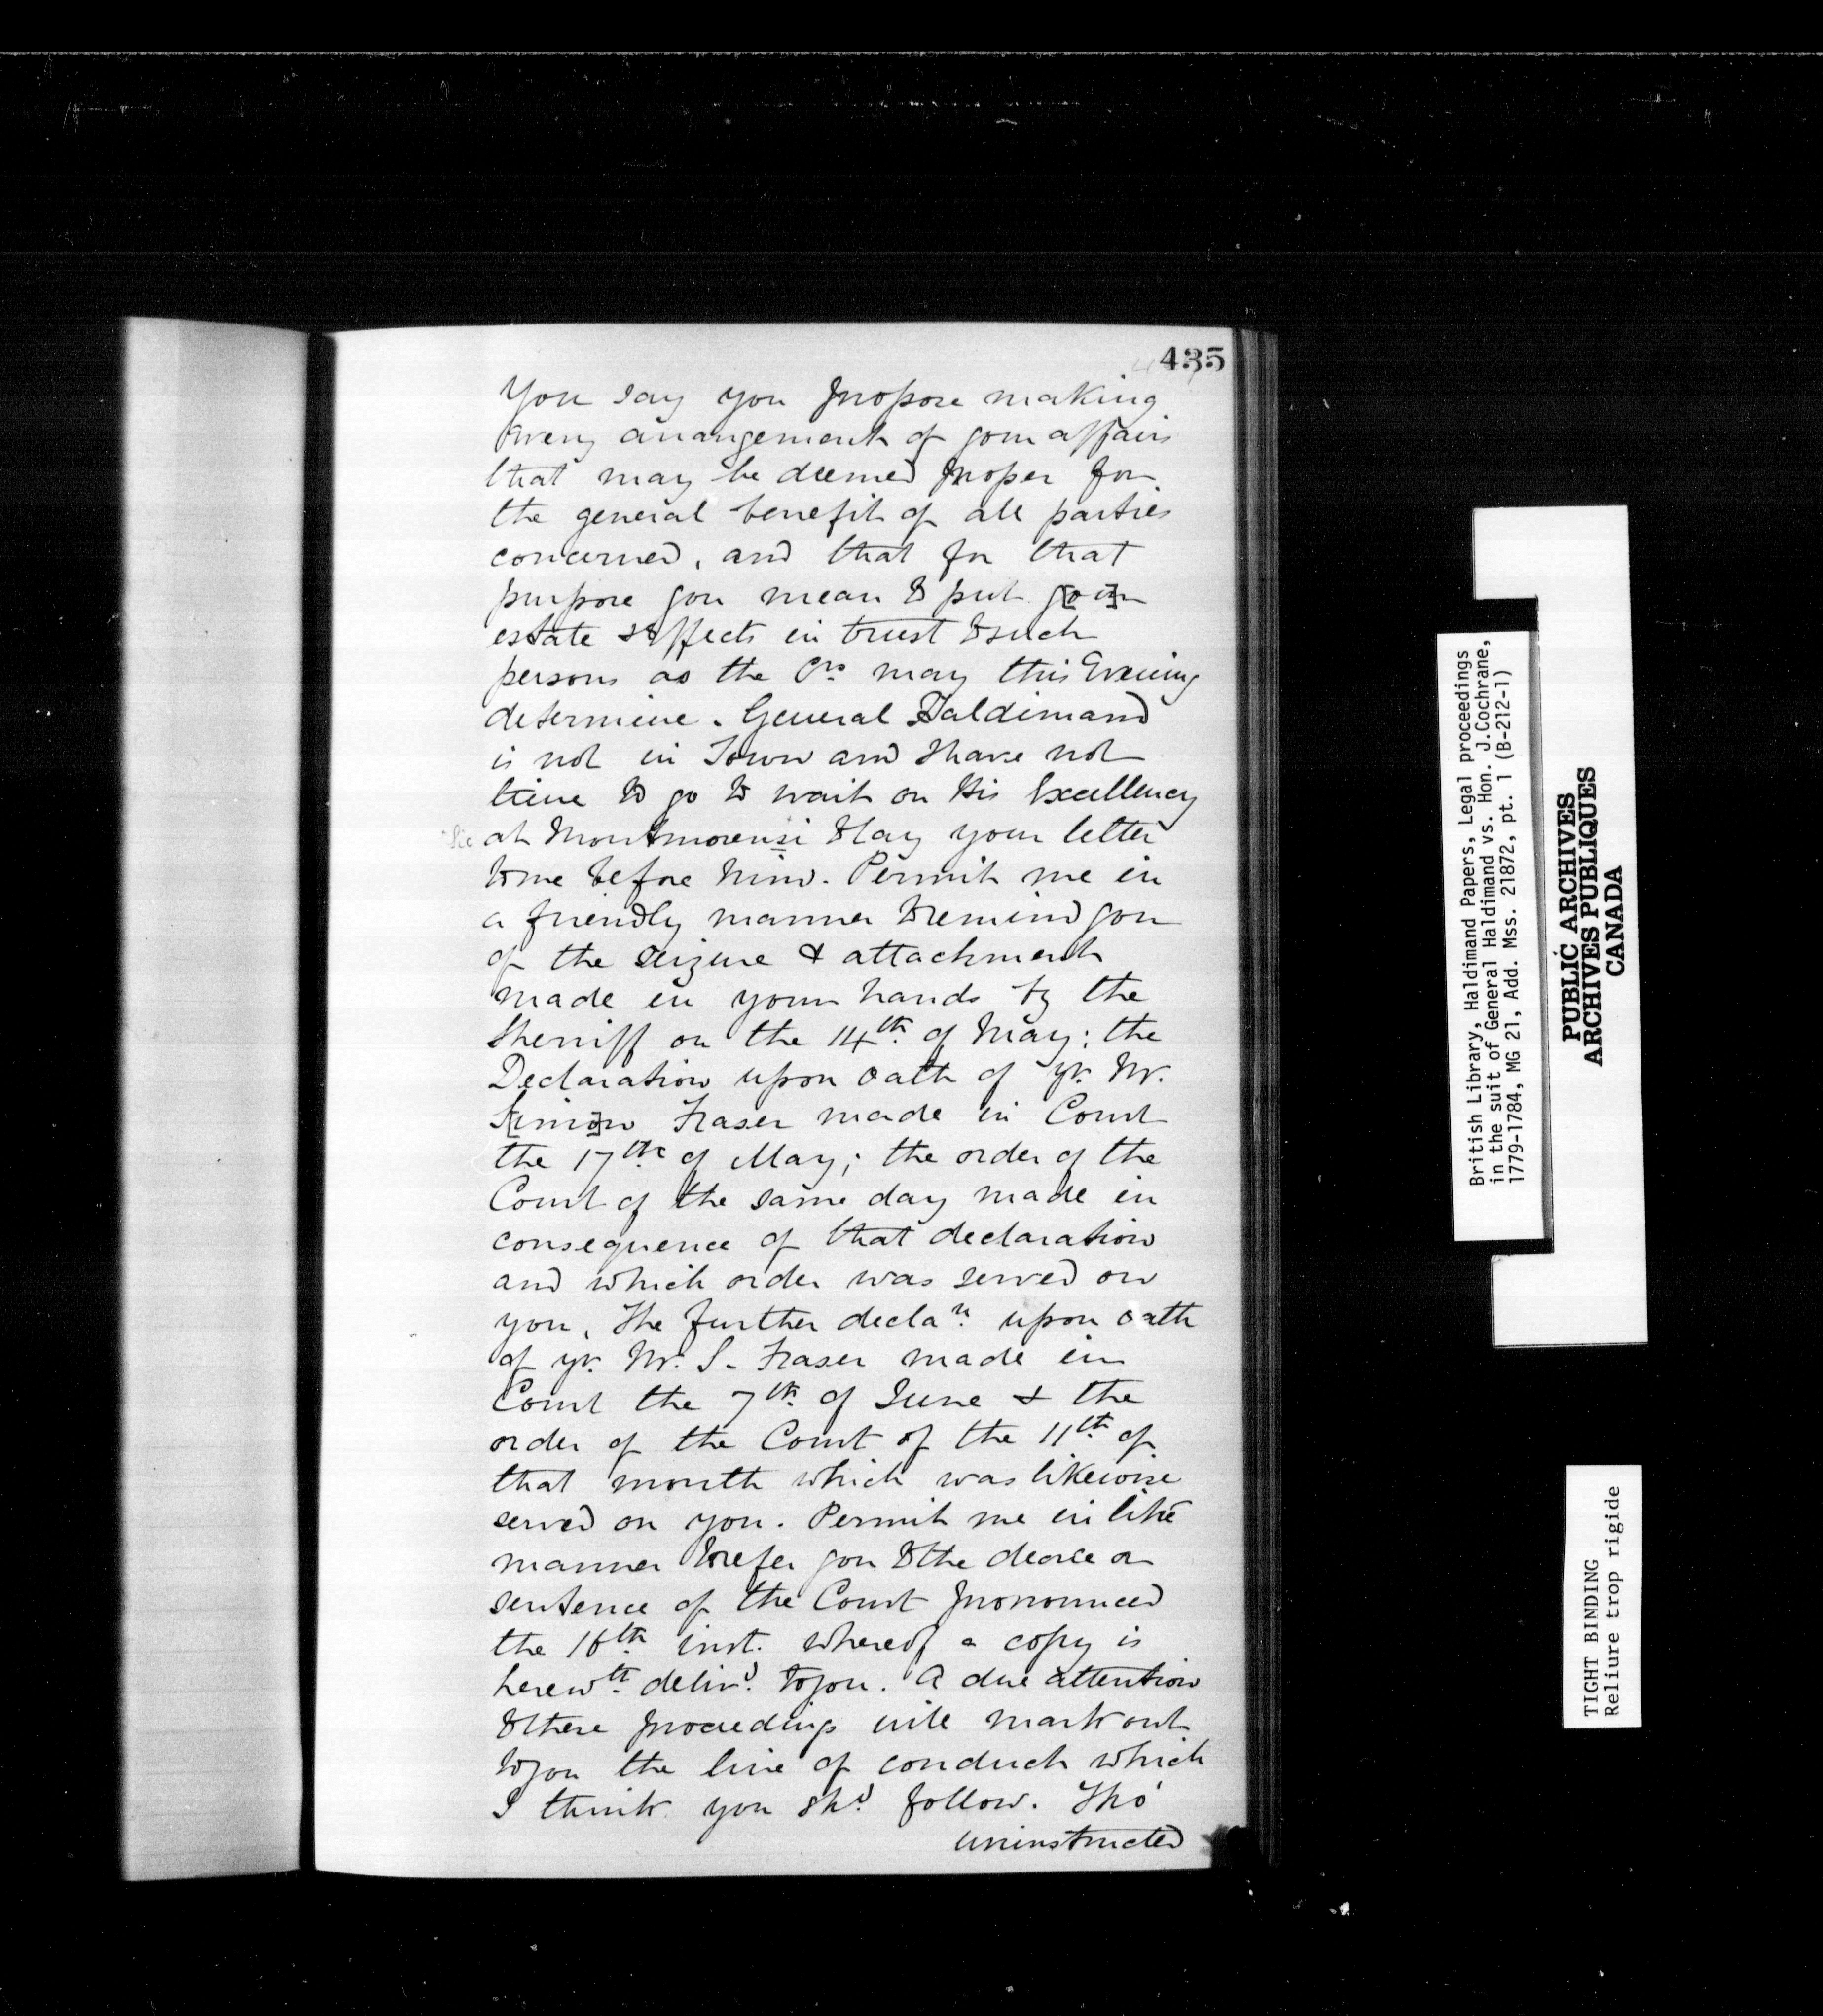 435
You say you propose making
every arrangement of your affairs
that may be deemed proper for
the general benefit of all parties
concerned, and that for that
purpose you mean to put y[ou]r
estate & effects in trust to such
persons as the Crs. may this Evening
determine. General Haldimand
is not in Town and I have not
time to go to wait on His Excellency
Sic at Montmorensi to lay your letter
to me before him. Permit me in
a friendly manner to remind you
of the seizure & attachment
made in your hands by the
Sherriff on the 14th. of May: the
Declaration upon Oath of yr. Mr.
S[imo]n Fraser made in Court
the 17th. of May; the order of the
Court of the same day made in
consequence of that declaration
and which order was served on
you, The further declan. upon Oath
of yr. Mr. S. Fraser made in
Court the 7th. of June & the
order of the Court of the 11th. of
that month which was likewise
served on you. Permit me in like
manner to refer you to the decree or
sentence of the Court pronounced
the 16th. inst. whereof a copy is
herewth. delivd. to you. A due attention
to these proceedings will mark out
to you the line of conduct which
I think you shd. follow. Tho'
uninstructed
British Library, Haldimand Papers, Legal proceedings
in the suit of General Haldimand vs. Hon. J.Cochrane,
1779-1784, MG 21, Add. Mss. 21872, pt. 1 (B-212-1)
PUBLIC ARCHIVES
ARCHIVES PUBLIQUES
CANADA
TIGHT BINDING
Reliure trop rigide